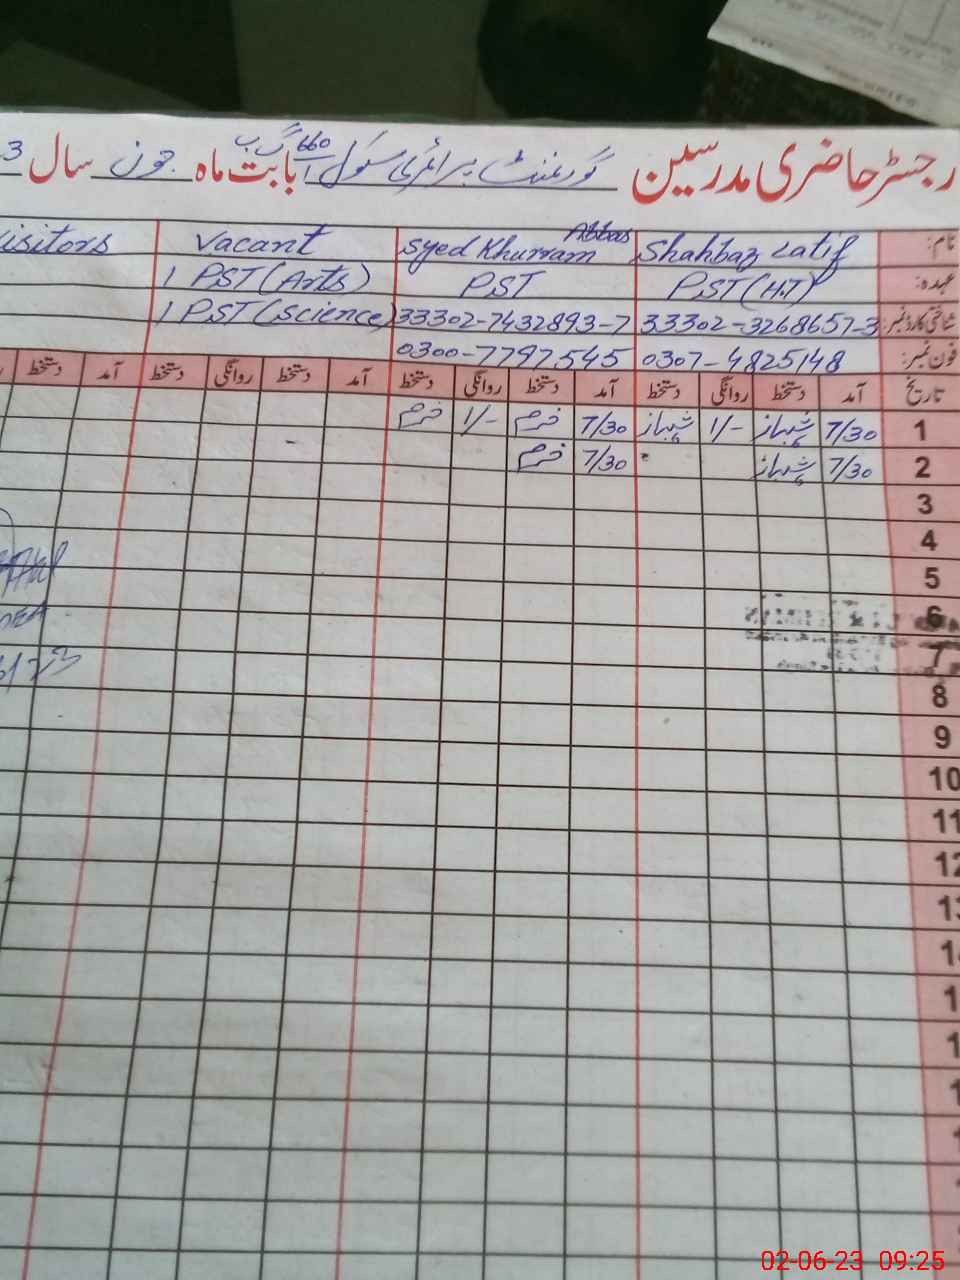 رجسٹر حاضری مدرسین گورنمنٹ پرائمری سکول 660 گ ب بابت ماہ جون سال 3
نام: Shahbaz Latif Syed Khurram Abbas Vacant isitors
عہدہ: PST (H.T) PST 1 PST (Arts)
شناختی کارڈ نمبر: 33302-3268657-3 33302-7432893-7 1 PST (Science)
فون نمبر: 0307-4825148 0300-7797545
تاریخ آمد دستخط روانگی دستخط آمد دستخط روانگی دستخط آمد دستخط روانگی دستخط آمد دستخط
1 7/30 شہباز 1/- شہباز 7/30 خرم 1/- خرم
2 7/30 شہباز 7/30 خرم
3
4
5
6
7
8
9
10
11
12
02-06-23 09:25